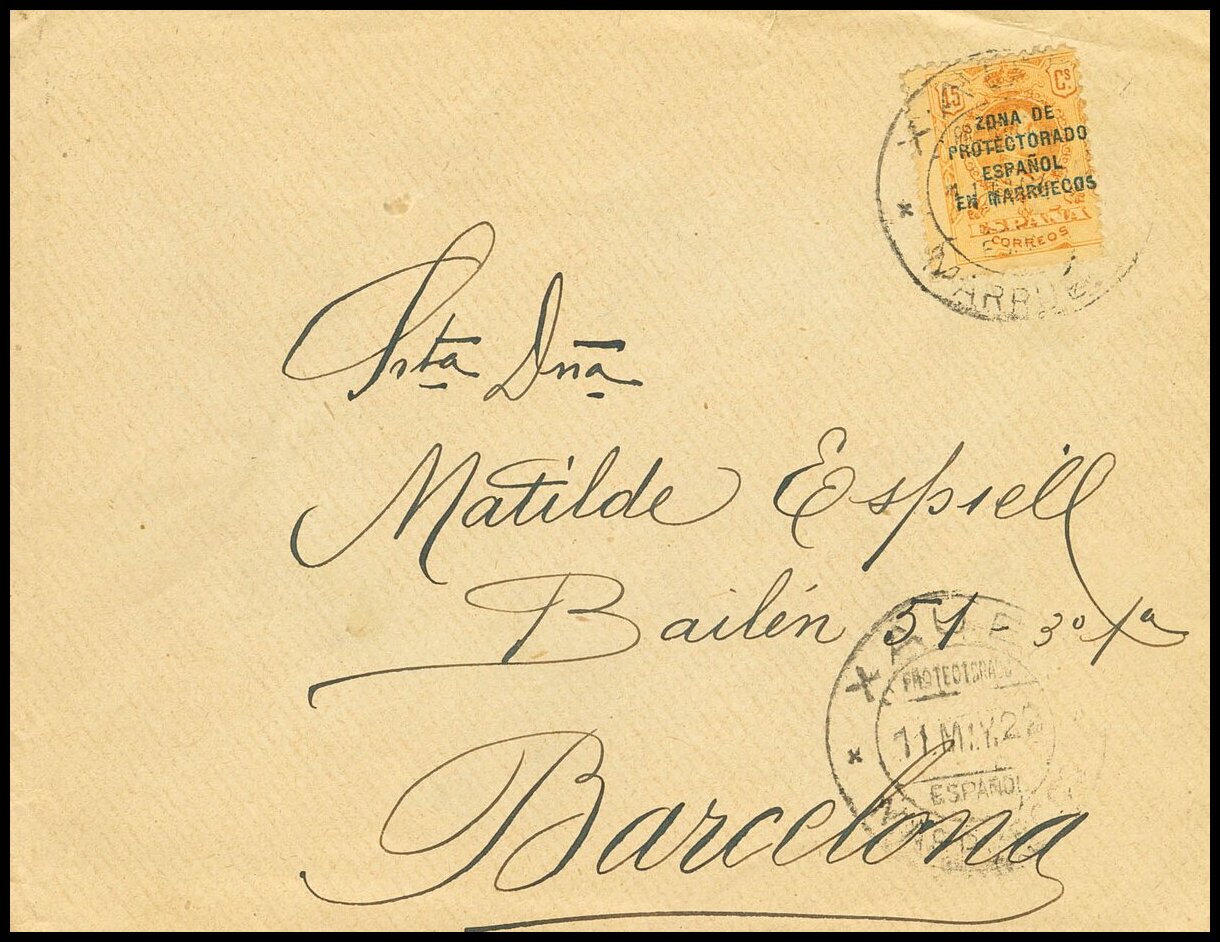 15 Cs
ZONA DE
PROTECTORADO
ESPAÑOL
EN MARRUECOS
ESPAÑA
CORREOS
Srta Dña
Matilde Espiell
Bailén 51 - 3º 1ª
Barcelona
PROTECTORADO
11 MY. 22
ESPAÑOL